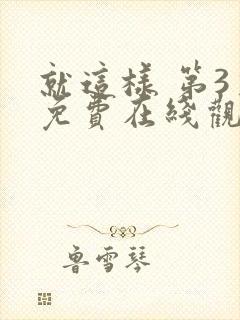 就這樣 第3
免費在綫觀
魯雪琴